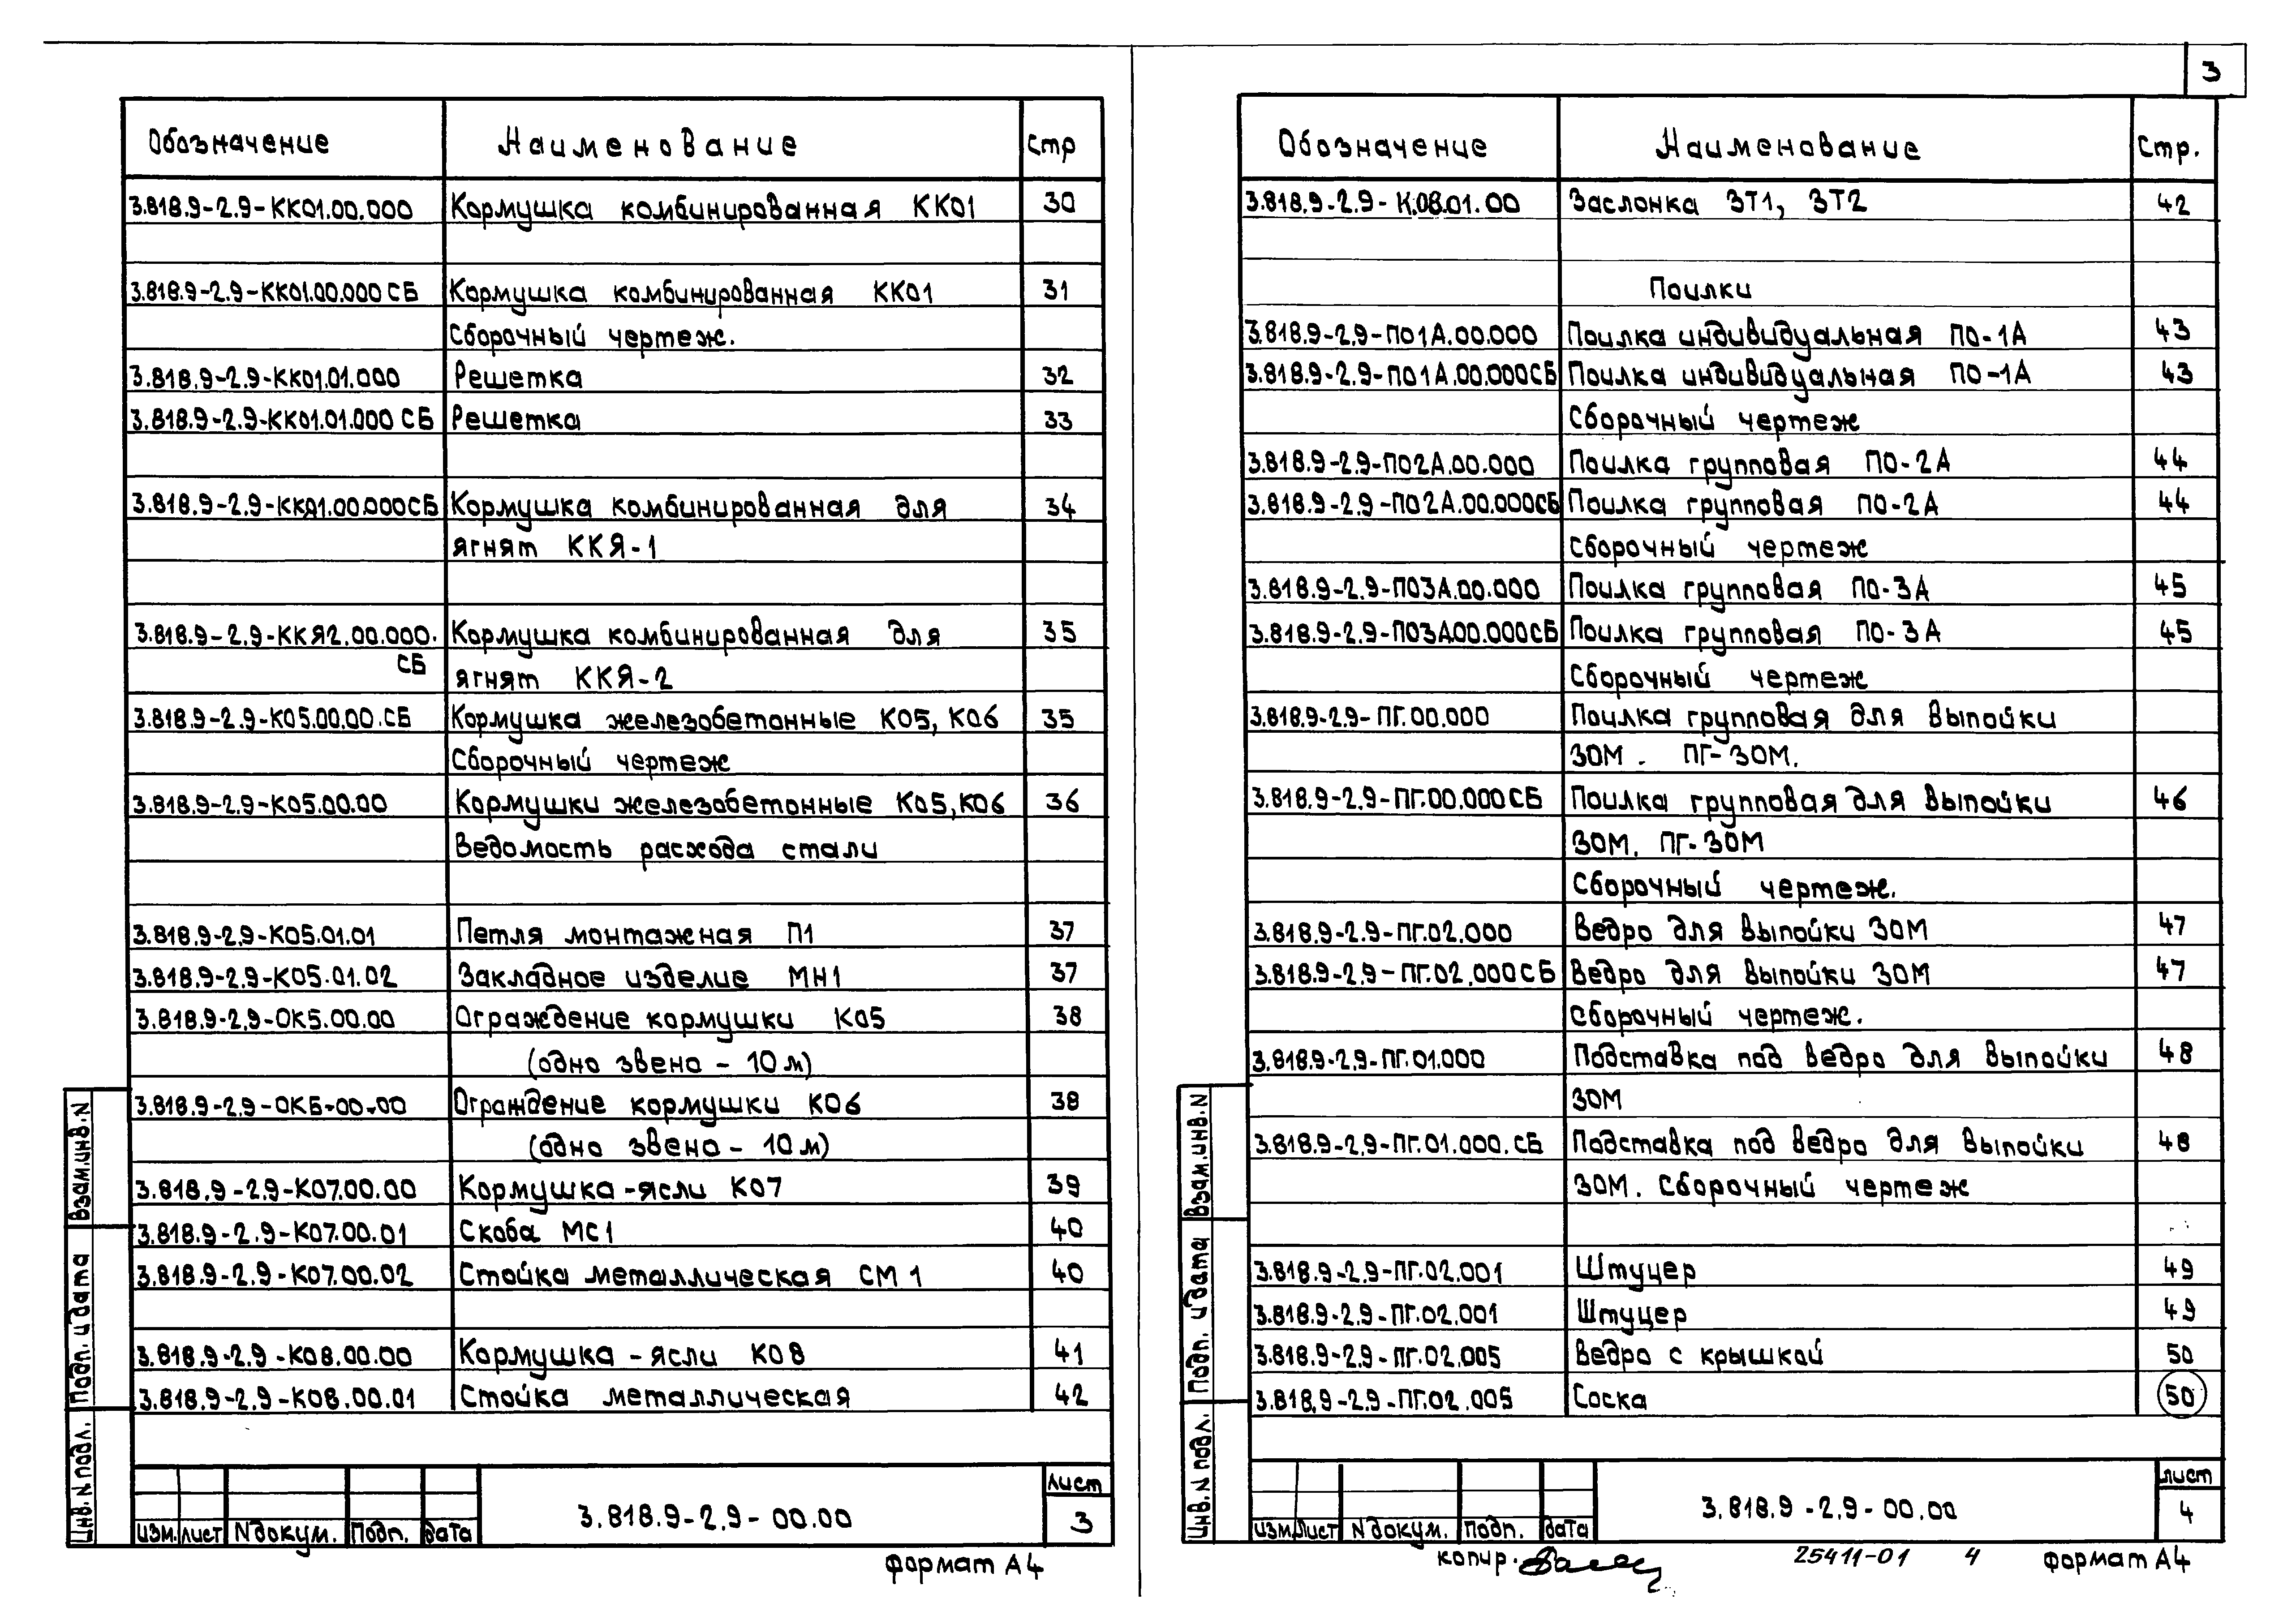 3
Обозначение Наименование Стр
3.818.9-2.9-КК01.00.000 Кормушка комбинированная КК01 30
3.818.9-2.9-КК01.00.000 СБ Кормушка комбинированная КК01 31
Сборочный чертеж.
3.818.9-2.9-КК01.01.000 Решетка 32
3.818.9-2.9-КК01.01.000 СБ Решетка 33
3.818.9-2.9-ККЯ1.00.000СБ Кормушка комбинированная для 34
ягнят ККЯ-1
3.818.9-2.9-ККЯ2.00.000. Кормушка комбинированная для 35
СБ
ягнят ККЯ-2
3.818.9-2.9-К05.00.00.СБ Кормушка железобетонные К05, К06 35
Сборочный чертеж
3.818.9-2.9-К05.00.00 Кормушки железобетонные К05, К06 36
Ведомость расхода стали
3.818.9-2.9-К05.01.01 Петля монтажная П1 37
3.818.9-2.9-К05.01.02 Закладное изделие МН1 37
3.818.9-2.9-ОК5.00.00 Ограждение кормушки К05 38
(одно звено - 10 м)
3.818.9-2.9-ОКБ-00-00 Ограждение кормушки К06 38
(одно звено - 10 м)
3.818.9-2.9-К07.00.00 Кормушка-ясли К07 39
3.818.9-2.9-К07.00.01 Скоба МС1 40
3.818.9-2.9-К07.00.02 Стойка металлическая СМ1 40
3.818.9-2.9-К08.00.00 Кормушка - ясли К08 41
3.818.9-2.9-К08.00.01 Стойка металлическая 42
Взам.инв.N
Подп. и дата
Инв. N подл.
Изм. Лист N докум. Подп. Дата
3.818.9-2.9-00.00
Лист
3
Формат А4
Обозначение Наименование Стр.
3.818.9-2.9-К.08.01.00 Заслонка ЗТ1, ЗТ2 42
Поилки
3.818.9-2.9-ПО1А.00.000 Поилка индивидуальная ПО-1А 43
3.818.9-2.9-ПО1А.00.000СБ Поилка индивидуальная ПО-1А 43
Сборочный чертеж
3.818.9-2.9-ПО2А.00.000 Поилка групповая ПО-2А 44
3.818.9-2.9-ПО2А.00.000СБ Поилка групповая ПО-2А 44
сборочный чертеж
3.818.9-2.9-ПО3А.00.000 Поилка групповая ПО-3А 45
3.818.9-2.9-ПО3А.00.000СБ Поилка групповая ПО-3А 45
Сборочный чертеж
3.818.9-2.9-ПГ.00.000 Поилка групповая для выпойки
ЗОМ. ПГ-ЗОМ.
3.818.9-2.9-ПГ.00.000СБ Поилка групповая для выпойки 46
ЗОМ. ПГ-ЗОМ
Сборочный чертеж.
3.818.9-2.9-ПГ.02.000 Ведро для выпойки ЗОМ 47
3.818.9-2.9-ПГ.02.000СБ Ведро для выпойки ЗОМ 47
сборочный чертеж.
3.818.9-2.9-ПГ.01.000 Подставка под ведро для выпойки 48
ЗОМ
3.818.9-2.9-ПГ.01.000.СБ Подставка под ведро для выпойки 48
ЗОМ. Сборочный чертеж
3.818.9-2.9-ПГ.02.001 Штуцер 49
3.818.9-2.9-ПГ.02.001 Штуцер 49
3.818.9-2.9-ПГ.02.005 Ведро с крышкой 50
3.818.9-2.9-ПГ.02.005 Соска 50
Взам.инв.N
Подп. и дата
Инв. N подл.
Изм. Лист N докум. Подп. Дата
3.818.9-2.9-00.00
Лист
4
копир. 25411-01 4 Формат А4